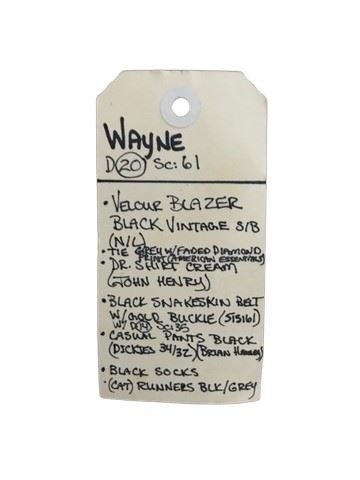 WAYNE
D(20) Sc:61
• VELOUR BLAZER
BLACK VINTAGE S/B
(N/L)
• TIE GREY W/FADED DIAMOND
PRINT (AMERICAN ESSENTIALS)
• DR. SHIRT CREAM
(JOHN HENRY)
• BLACK SNAKESKIN BELT
W/GOLD BUCKLE (515161)
W/ D(14) Sc:35
• CASUAL PANTS BLACK
(DICKIES 34/32) (BRIAN
• BLACK SOCKS
• (CAT) RUNNERS BLK/GREY